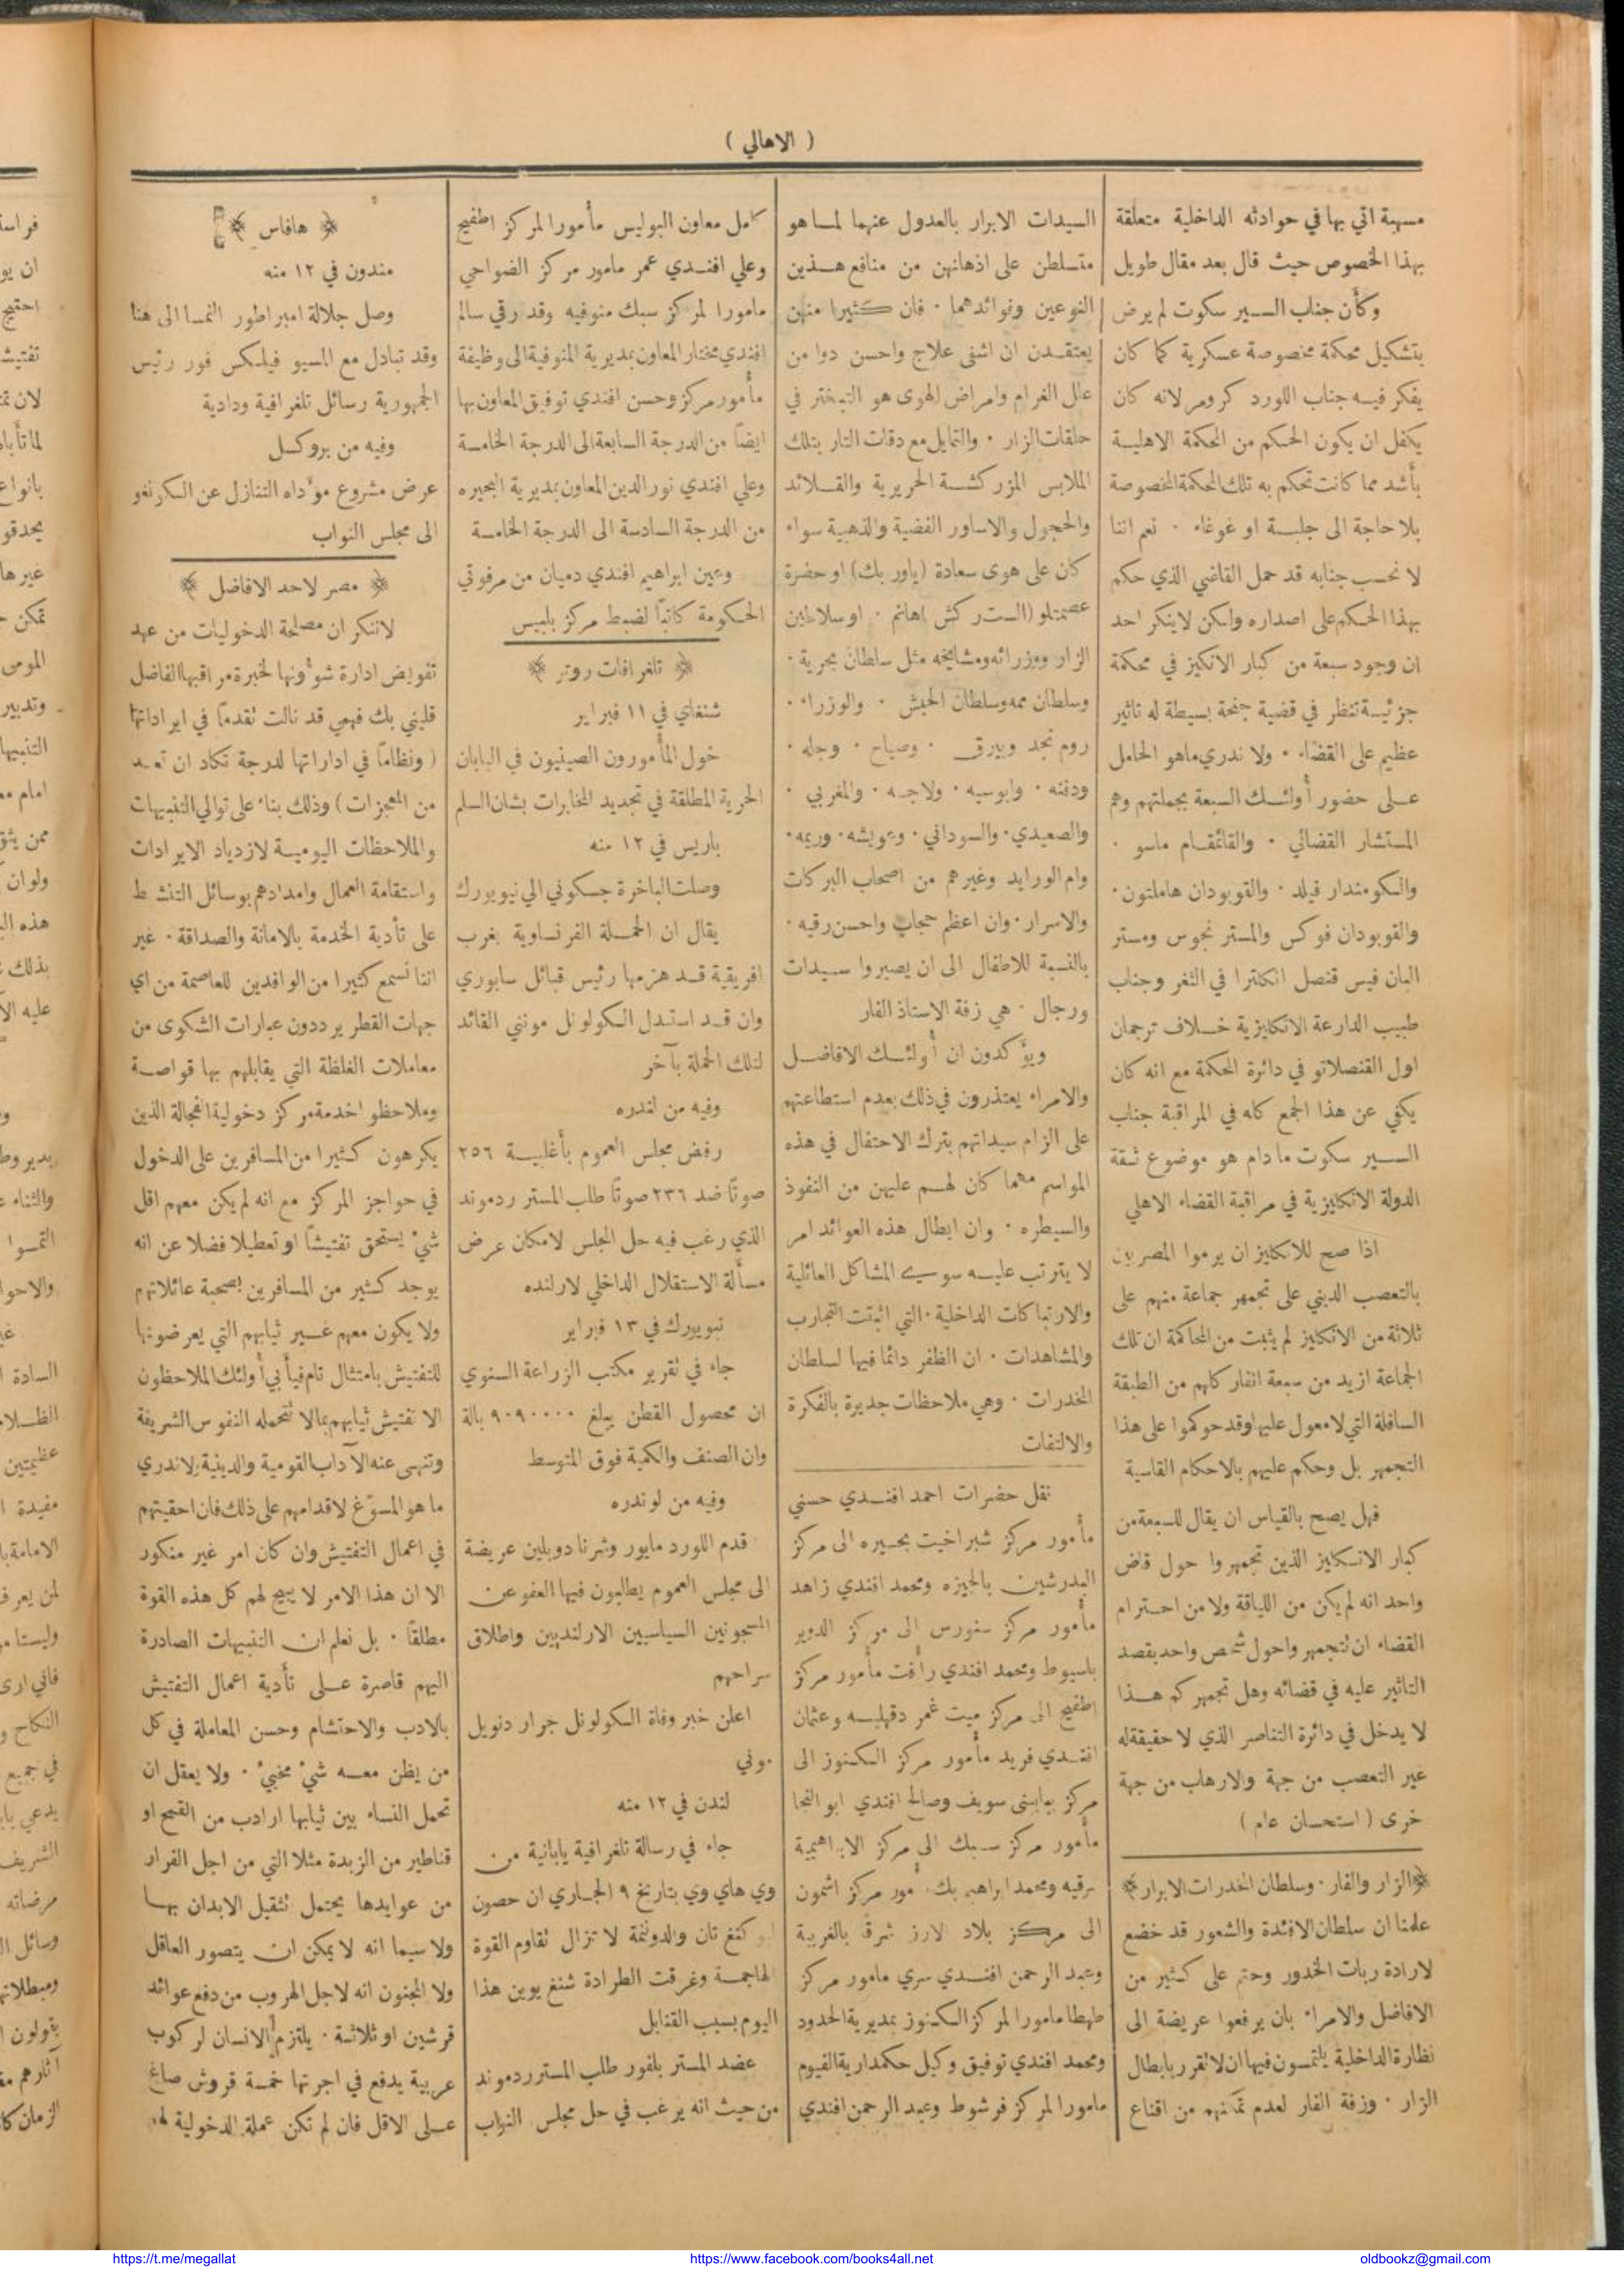 ( الاهالي )
مسهبة اتي بها في حوادثه الداخلية متعلقة
بهذا الخصوص حيث قال بعد مقال طويل
وكأن جناب السير سكوت لم يرض
بتشكيل محكمة مخصوصة عسكرية كما كان
يفكر فيه جناب اللورد كرومر لانه كان
يكفل ان يكون الحكم من المحكمة الاهلية
بأشد مما كانت تحكم به تلك المحكمة المخصوصة
بلا حاجة الى جلبة او غوغاء ٠ نعم اننا
لا نحسب جنابه قد حمل القاضي الذي حكم
بهذا الحكم على اصداره ولكن لا ينكر احد
ان وجود سبعة من كبار الانكليز في محكمة
جزئية تنظر في قضية جنحة بسيطة له تاثير
عظيم على القضاء ٠ ولا ندري ما هو الحامل
على حضور أولئك السبعة بجملتهم وهم
المستشار القضائي ٠ والقائمقام ماسو ٠
والكومندار فيلد ٠ والقوبودان هاملتون ٠
والقوبودان فوكس والمستر نجوس ومستر
البان فيس قنصل انكلترا في الثغر وجناب
طبيب الدارعة الانكليزية خلاف ترجمان
اول القنصلاتو في دائرة المحكمة مع انه كان
يكفي عن هذا الجمع كله في المراقبة جناب
السير سكوت ما دام هو موضوع ثقة
الدولة الانكليزية في مراقبة القضاء الاهلي
اذا صح للانكليز ان يرموا المصريين
بالتعصب الديني على تجمهر جماعة منهم على
ثلاثة من الانكليز لم يثبت من المحاكمة ان تلك
الجماعة ازيد من سبعة انفار كلهم من الطبقة
السافلة التي لا معول عليها وقد حوكموا على هذا
التجمهر بل وحكم عليهم بالاحكام القاسية
فهل يصح بالقياس ان يقال للسبعة من
كبار الانكليز الذين تجمهروا حول قاض
واحد انه لم يكن من اللياقة ولا من احترام
القضاء ان تتجمهروا حول شخص واحد بقصد
التاثير عليه في قضائه وهل تجمهركم هذا
لا يدخل في دائرة التناصر الذي لا حقيقة له
غير التعصب من جهة والارهاب من جهة
خرى ( استحسان عام )
﴿ الزار والفار ٠ وسلطان المخدرات الابرار ﴾
علمنا ان سلطان الافئدة والشعور قد خضع
لارادة ربات الخدور وحتم على كثير من
الافاضل والامراء بان يرفعوا عريضة الى
نظارة الداخلية يلتمسون فيها ان لا تقرر بابطال
الزار ٠ وزفة الفار لعدم تمكنهم من اقناع
السيدات الابرار بالعدول عنهما لما هو
متسلطن على اذهانهن من منافع هذين
النوعين وفوائدهما ٠ فان كثيرا منهن
يعتقدن ان اشفى علاج واحسن دوا من
علل الغرام وامراض الهوى هو التبختر في
حلقات الزار ٠ والتمايل مع دقات التار بتلك
الملابس المزركشة الحريرية والقلائد
والحجول والاساور الفضية والذهبية سواء
كان على هوى سعادة (ياور بك) او حضرة
عصمتلو (الست ركش هانم ٠ او سلاطين
الزار ووزرائه ومشايخه مثل سلطان بحرية ٠
وسلطان ممه وسلطان الحبش ٠ والوزراء ٠
روم نجد وبيرق ٠ وصياح ٠ وجله ٠
ودقنه ٠ وابوسيه ٠ ولاجه ٠ والمغربي ٠
والصعيدي ٠ والسوداني ٠ وعويشه ٠ وريمه ٠
وام الورايد وغيرهم من اصحاب البركات
والاسرار ٠ وان اعظم حجاب واحسن رقيه ٠
بالنسبة للاطفال الى ان يصيروا سيدات
ورجال ٠ هي زفة الاستاذ الفار
ويؤكدون ان أولئك الافاضل
والامراء يعتذرون في ذلك بعدم استطاعتهم
على الزام سيداتهم بترك الاحتفال في هذه
المواسم مهما كان لهم عليهن من النفوذ
والسيطره ٠ وان ابطال هذه العوائد امر
لا يترتب عليه سوى المشاكل العائلية
والارتباكات الداخلية ٠ التي اثبتت التجارب
والمشاهدات ٠ ان الظفر دائما فيها لسلطان
المخدرات ٠ وهي ملاحظات جديرة بالفكرة
والالتفات
نقل حضرات احمد افندي حسني
مأمور مركز شبراخيت بحيره الى مركز
البدرشين بالجيزه ومحمد افندي زاهد
مأمور مركز سنورس الى مركز الدوير
باسيوط ومحمد افندي رأفت مأمور مركز
اطفيح الى مركز ميت غمر دقهليه وعثمان
افندي فريد مأمور مركز الكنوز الى
مركز ببا ببني سويف وصالح افندي ابو النجا
مأمور مركز سبك الى مركز الابراهيمية
شرقيه ومحمد ابراهيم بك مأمور مركز اشمون
الى مركز بلاد الارز شرق بالغربية
وعبد الرحمن افندي سري مامور مركز
طهطا مامورا لمركز الكنوز بمديرية الحدود
ومحمد افندي توفيق وكيل حكمدارية الفيوم
مامورا لمركز فرشوط وعبد الرحمن افندي
كامل معاون البوليس مأمورا لمركز اطفيح
وعلي افندي عمر مامور مركز الضواحي
مامورا لمركز سبك منوفيه وقد رقي سالم
افندي مختار المعاون بمديرية المنوفية الى وظيفة
مأمور مركز وحسن افندي توفيق المعاون بها
ايضاً من الدرجة السابعة الى الدرجة الخامسة
وعلي افندي نور الدين المعاون بمديرية البحيره
من الدرجة السادسة الى الدرجة الخامسة
وعين ابراهيم افندي دميان من مرفوتي
الحكومة كاتباً لضبط مركز بلبيس
﴿ تلغرافات روتر ﴾
شنغاي في ١١ فبراير
خول المأمورون الصينيون في اليابان
الحرية المطلقة في تجديد المخابرات بشان السلم
باريس في ١٢ منه
وصلت الباخرة جسكوني الي نيويورك
يقال ان الحملة الفرنساوية بغرب
افريقية قد هزمها رئيس قبائل سابوري
وان قد استدل الكولونل مونتي القائد
لتلك الحملة بآخر
وفيه من لندره
رفض مجلس العموم بأغلبية ٢٥٦
صوتاً ضد ٢٣٦ صوتاً طلب المستر ردموند
الذي رغب فيه حل المجلس لامكان عرض
مسألة الاستقلال الداخلي لارلنده
نيويورك في ١٣ فبراير
جاء في تقرير مكتب الزراعة السنوي
ان محصول القطن يبلغ ٩٠٩٠٠٠٠ بالة
وان الصنف والكمية فوق المتوسط
وفيه من لوندره
قدم اللورد مايور وشرنا دوبلين عريضة
الى مجلس العموم يطلبون فيها العفو عن
المسجونين السياسيين الارلنديين واطلاق
سراحهم
اعلن خبر وفاة الكولونل جرار دنويل
موني
لندن في ١٢ منه
جاء في رسالة تلغرافية يابانية من
وي هاي وي بتاريخ ٩ الجاري ان حصون
ليو كنغ تان والدوننمة لا تزال تقاوم القوة
الهاجمة وغرقت الطرادة شنغ يوين هذا
اليوم بسبب القنابل
عضد المستر بلفور طلب المستر ردموند
من حيث انه يرغب في حل مجلس النواب
﴿ هافاس ﴾
مندون في ١٢ منه
وصل جلالة امبراطور النمسا الى هنا
وقد تبادل مع المسيو فيلكس فور رئيس
الجمهورية رسائل تلغرافية ودادية
وفيه من بروكسل
عرض مشروع مؤداه التنازل عن الكونغو
الى مجلس النواب
﴿ مصر لاحد الافاضل ﴾
لاننكر ان مصلحة الدخوليات من عهد
تفويض ادارة شؤونها لخبرة مراقبها الفاضل
قليني بك فهمي قد نالت تقدماً في ايراداتها
( ونظاماً في اداراتها لدرجة تكاد ان تعد
من المعجزات ) وذلك بناء على توالي التنبيهات
والملاحظات اليومية لازدياد الايرادات
واستقامة العمال وامدادهم بوسائل التنشيط
على تأدية الخدمة بالامانة والصداقة ٠ غير
اننا نسمع كثيرا من الوافدين للعاصمة من اي
جهات القطر يرددون عبارات الشكوى من
معاملات الغلظة التي يقابلهم بها قواصة
وملاحظو اخدمة مركز دخولية الفجالة الذين
يكرهون كثيرا من المسافرين على الدخول
في حواجز المركز مع انه لم يكن معهم اقل
شيء يستحق تفتيشاً او تعطيلا فضلا عن انه
يوجد كثير من المسافرين بصحبة عائلاتهم
ولا يكون معهم غير ثيابهم التي يعرضونها
للتفتيش بامتثال تام فيأبي أولئك الملاحظون
الا تفتيش ثيابهم بمالا تتحمله النفوس الشريفة
وتنهى عنه الآداب القومية والدينية ولا ندري
ما هو المسوّغ لاقدامهم على ذلك فان احقيتهم
في اعمال التفتيش وان كان امر غير منكور
الا ان هذا الامر لا يبيح لهم كل هذه القوة
مطلقاً ٠ بل نعلم ان التنبيهات الصادرة
اليهم قاصرة على تأدية اعمال التفتيش
بالادب والاحتشام وحسن المعاملة في كل
من يظن معه شيء مخبيء ٠ ولا يعقل ان
تحمل النساء بين ثيابها ارادب من القمح او
قناطير من الزبدة مثلا التي من اجل الفرار
من عوايدها يحتمل تثقيل الابدان بها
ولا سيما انه لا يمكن ان يتصور العاقل
ولا المجنون انه لاجل الهروب من دفع عوائد
قرشين او ثلاثة ٠ يلتزم الانسان لركوب
عربية يدفع في اجرتها خمسة قروش صاغ
على الاقل فان لم تكن عملة الدخولية لهم
https://t.me/megallat
https://www.facebook.com/books4all.net
oldbookz@gmail.com